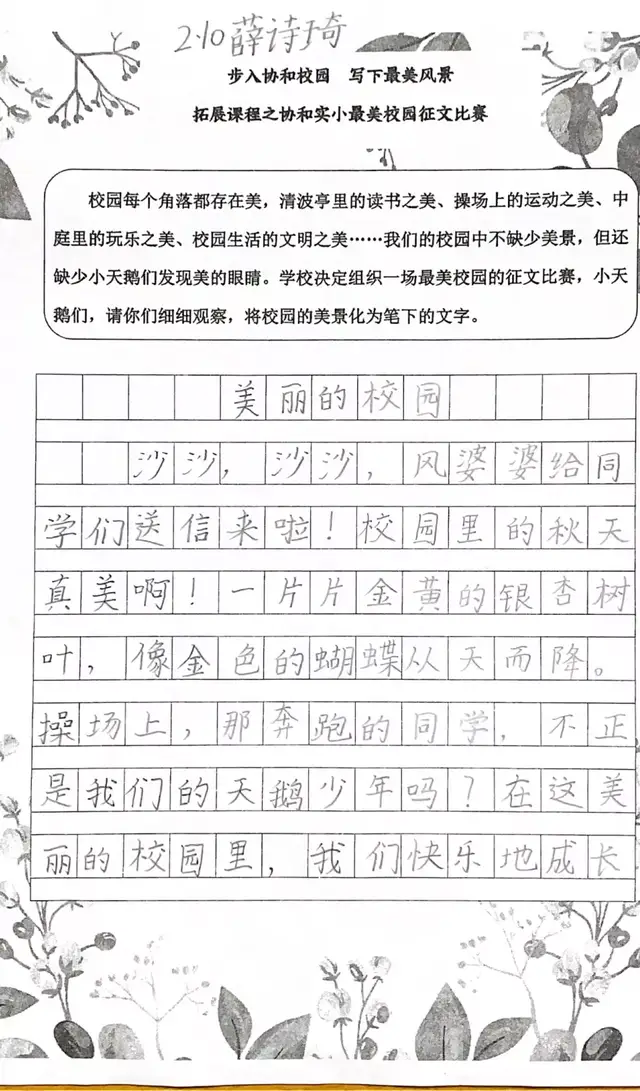 2.10薛诗琦
步入协和校园 写下最美风景
拓展课程之协和实小最美校园征文比赛
校园每个角落都存在美，清波亭里的读书之美、操场上的运动之美、中
庭里的玩乐之美、校园生活的文明之美……我们的校园中不缺少美景，但还
缺少小天鹅们发现美的眼睛。学校决定组织一场最美校园的征文比赛，小天
鹅们，请你们细细观察，将校园的美景化为笔下的文字。
美丽的校园
沙沙，沙沙，风婆婆给同
学们送信来啦！校园里的秋天
真美啊！一片片金黄的银杏树
叶，像金色的蝴蝶从天而降。
操场上，那奔跑的同学，不正
是我们的天鹅少年吗？在这美
丽的校园里，我们快乐地成长